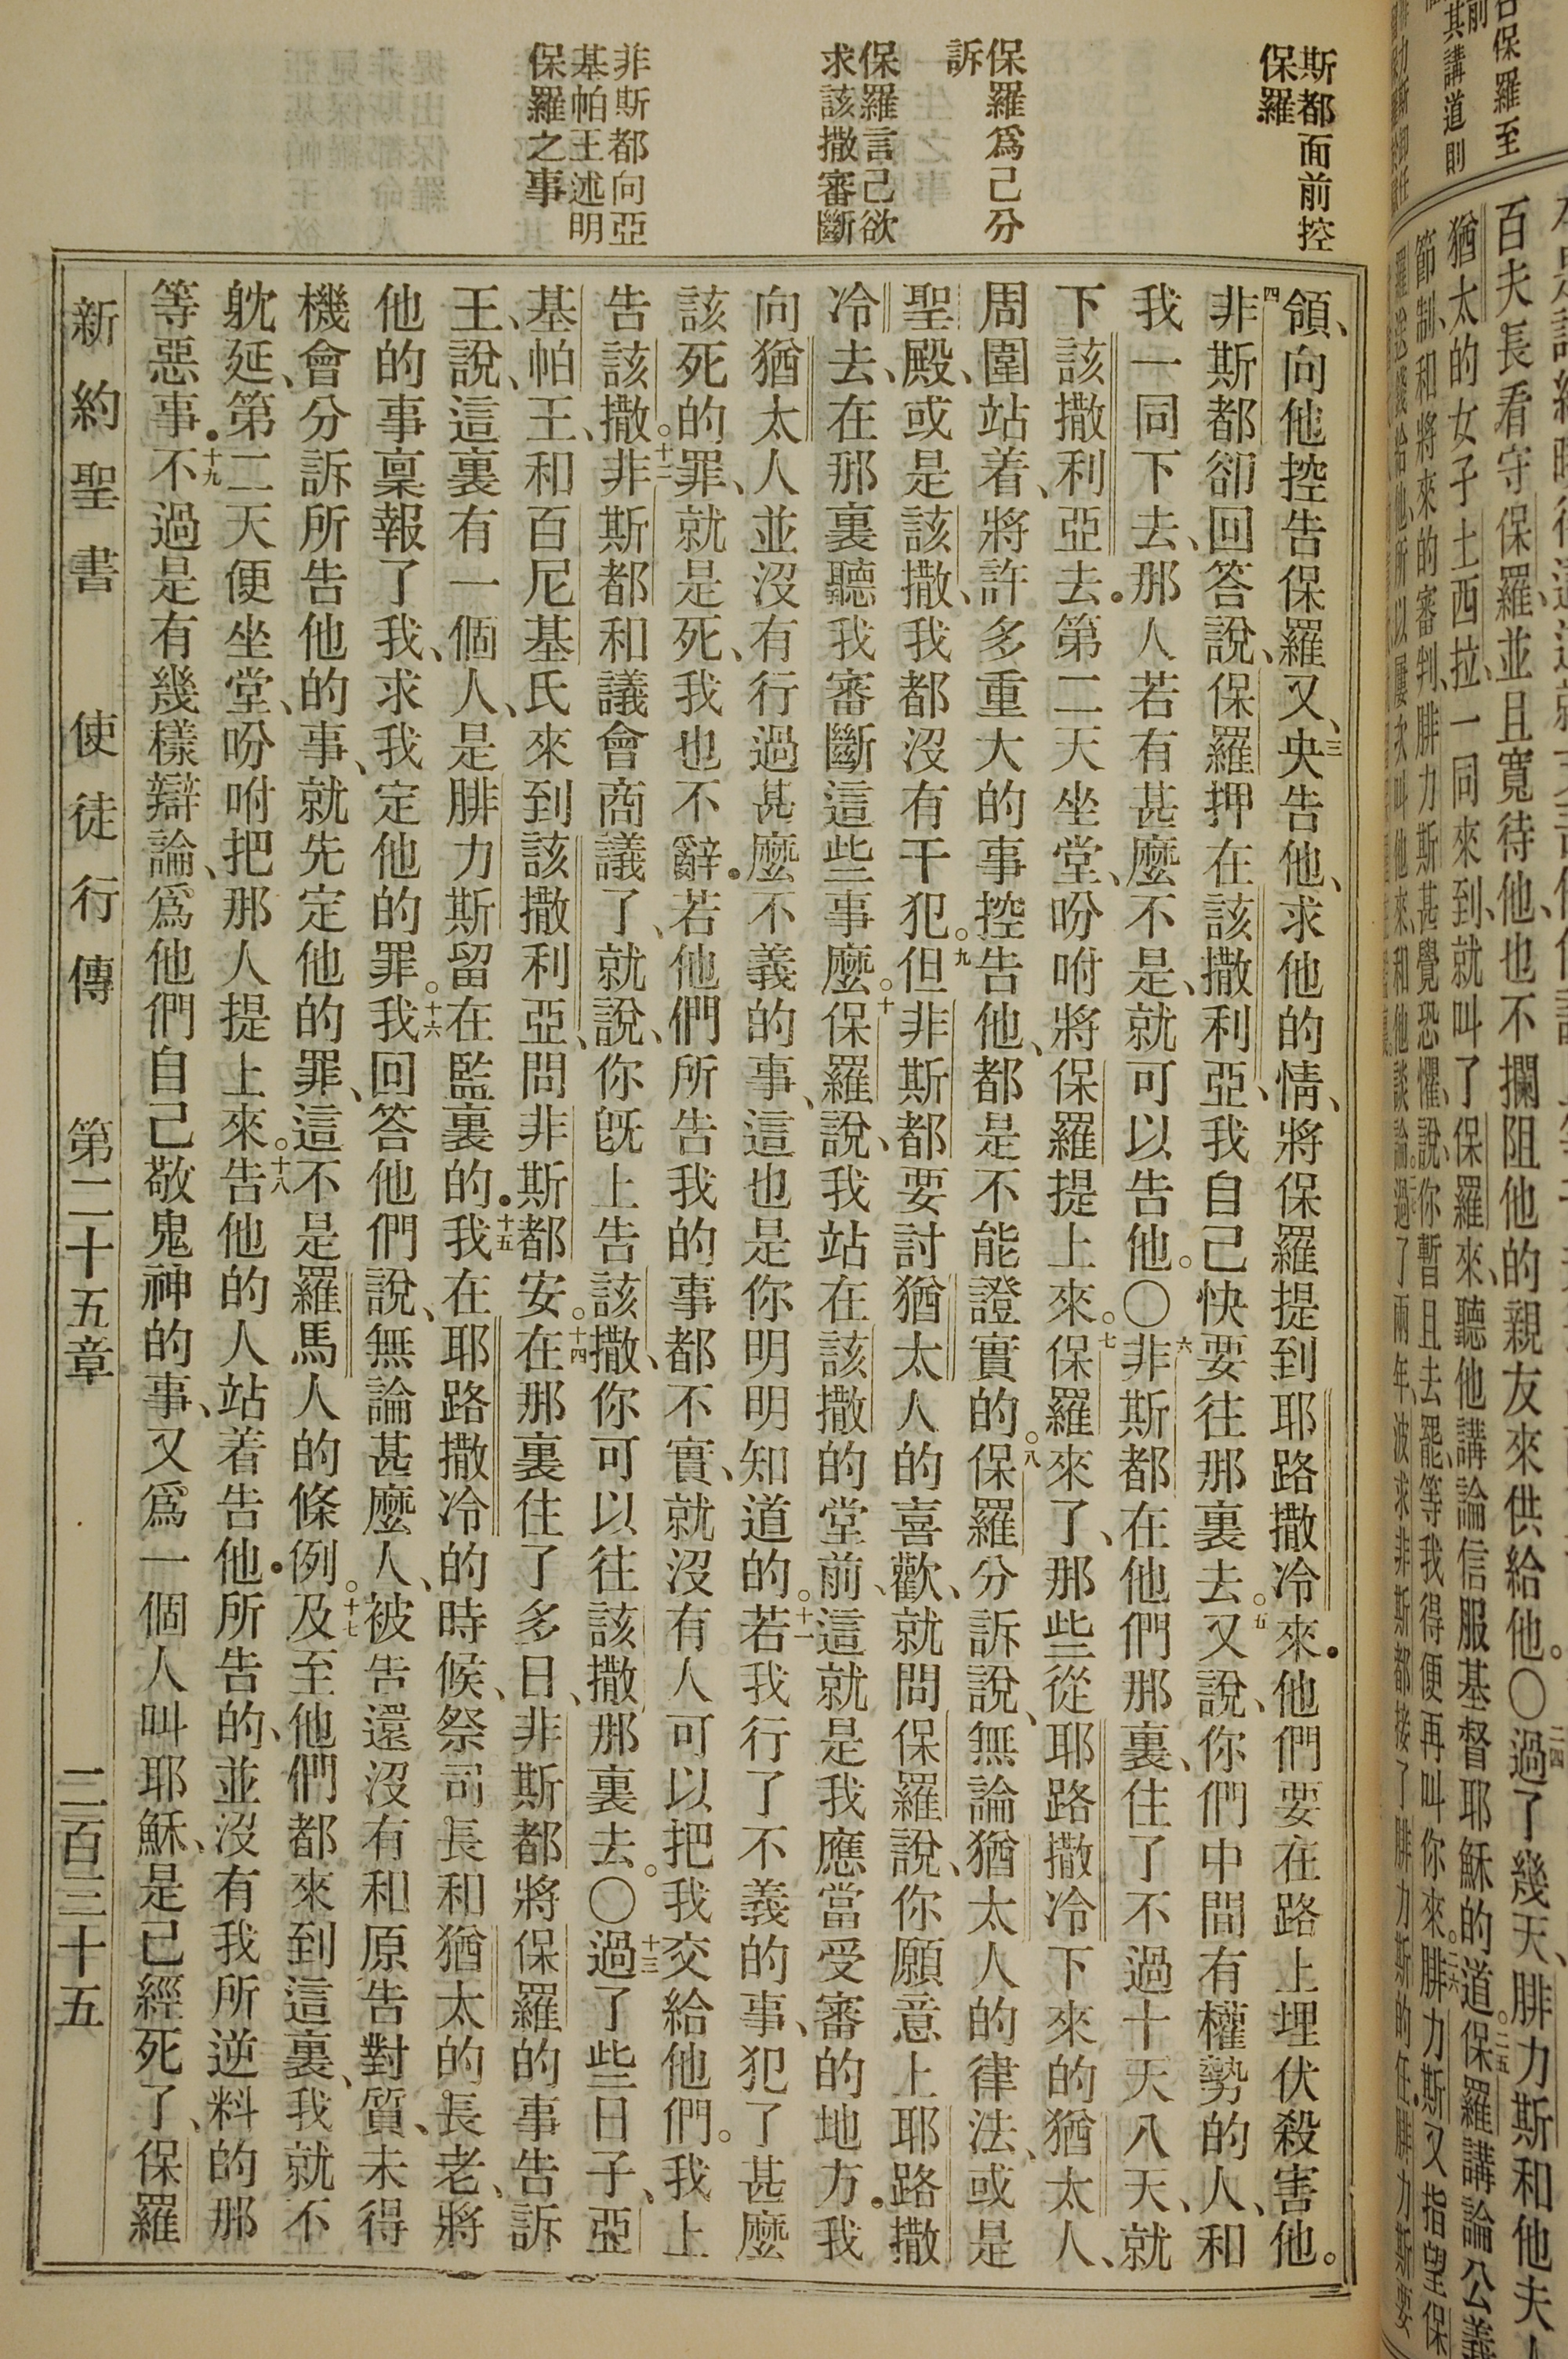 百夫長看守保羅、並且寬待他、也不攔阻他的親友來供給他。〇二四過了幾天、腓力斯和他夫人
猶太的女子土西拉、一同來到、就叫了保羅來、聽他講論信服基督耶穌的道。二五保羅講論公義
節制、和將來的審判、腓力斯甚覺恐懼、說、你暫且去罷、等我得便再叫你來。二六腓力斯又指望保
羅送錢給他、所以屢次叫他來、和他談論。過了兩年、波求非斯都接了腓力斯的任、腓力斯要
斯都面前控
保羅
保羅爲己分
訴
保羅言己欲
求該撒審斷
非斯都向亞
基帕王述明
保羅之事
領、向他控告保羅、又三央告他、求他的情、將保羅提到耶路撒冷來●他們要在路上埋伏殺害他。
四非斯都卻回答說、保羅押在該撒利亞、我自己快要往那裏去。五又說、你們中間有權勢的人、和
我一同下去、那人若有甚麼不是、就可以告他。〇六非斯都在他們那裏、住了不過十天八天、就
下該撒利亞去●第二天坐堂、吩咐將保羅提上來。七保羅來了、那些從耶路撒冷下來的猶太人、
周圍站着、將許多重大的事控告他、都是不能證實的。八保羅分訴說、無論猶太人的律法、或是
聖殿、或是該撒、我都沒有干犯。九但非斯都要討猶太人的喜歡、就問保羅說、你願意上耶路撒
冷去、在那裏聽我審斷這些事麼。十保羅說、我站在該撒的堂前、這就是我應當受審的地方●我
向猶太人並沒有行過甚麼不義的事、這也是你明明知道的。十一若我行了不義的事、犯了甚麼
該死的罪、就是死、我也不辭●若他們所告我的事都不實、就沒有人可以把我交給他們。我上
告該撒。十二非斯都和議會商議了、就說、你旣上告該撒、你可以往該撒那裏去。〇十三過了些日子、亞
基帕王、和百尼基氏來到該撒利亞、問非斯都安。十四在那裏住了多日、非斯都將保羅的事告訴
王、說、這裏有一個人、是腓力斯留在監裏的●十五我在耶路撒冷的時候、祭司長和猶太的長老、將
他的事稟報了我、求我定他的罪。十六我回答他們說、無論甚麼人、被告還沒有和原告對質、未得
機會分訴所告他的事、就先定他的罪、這不是羅馬人的條例。十七及至他們都來到這裏、我就不
躭延、第二天便坐堂、吩咐把那人提上來。十八告他的人站着告他●所告的、並沒有我所逆料的那
等惡事●十九不過是有幾樣辯論、爲他們自己敬鬼神的事、又爲一個人叫耶穌、是已經死了、保羅
新約聖書　使徒行傳　第二十五章　二百三十五